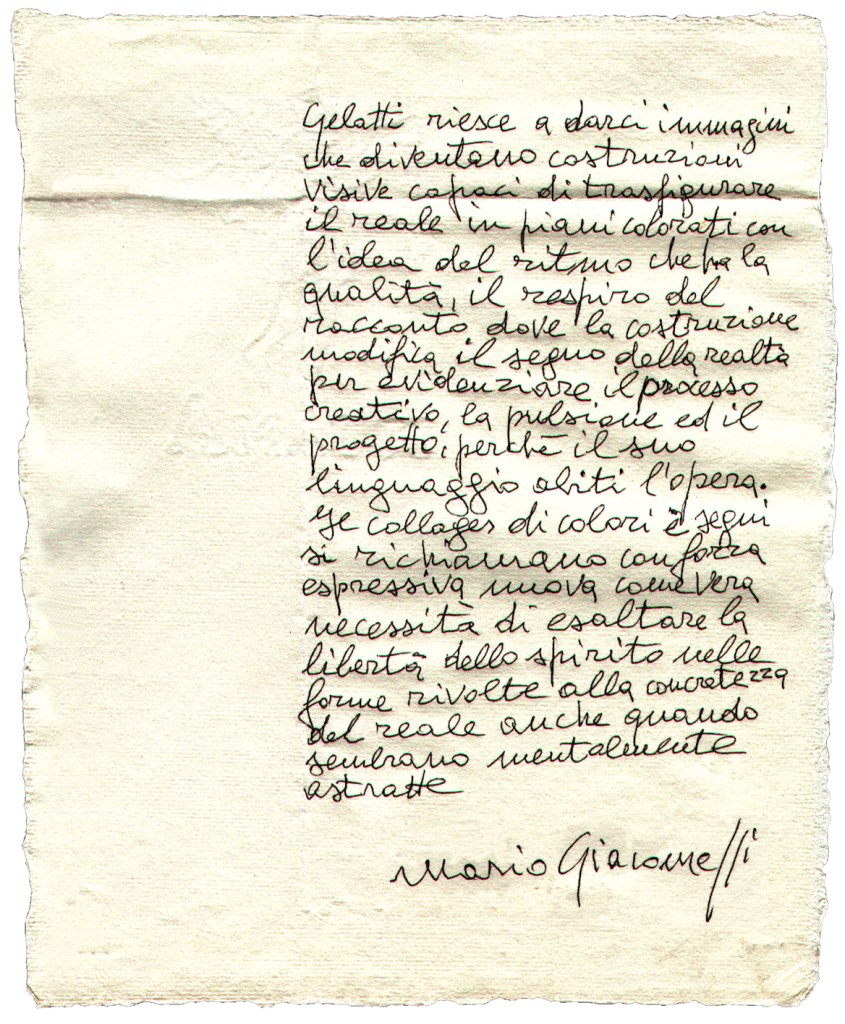 Gelatti riesce a darci immagini
che diventano costruzioni
visive capaci di trasfigurare
il reale in piani colorati con
l'idea del ritmo che ha la
qualità, il respiro del
racconto dove la costruzione
modifica il segno della realtà
per evidenziare il processo
creativo, la pulsione ed il
progetto, perchè il suo
linguaggio abiti l'opera.
Ge collages di colori e segni
si richiamano con forza
espressiva nuova come vera
necessità di esaltare la
libertà dello spirito nelle
forme rivolte alla concretezza
del reale anche quando
sembrano mentalmente
astratte
Mario Giacomelli